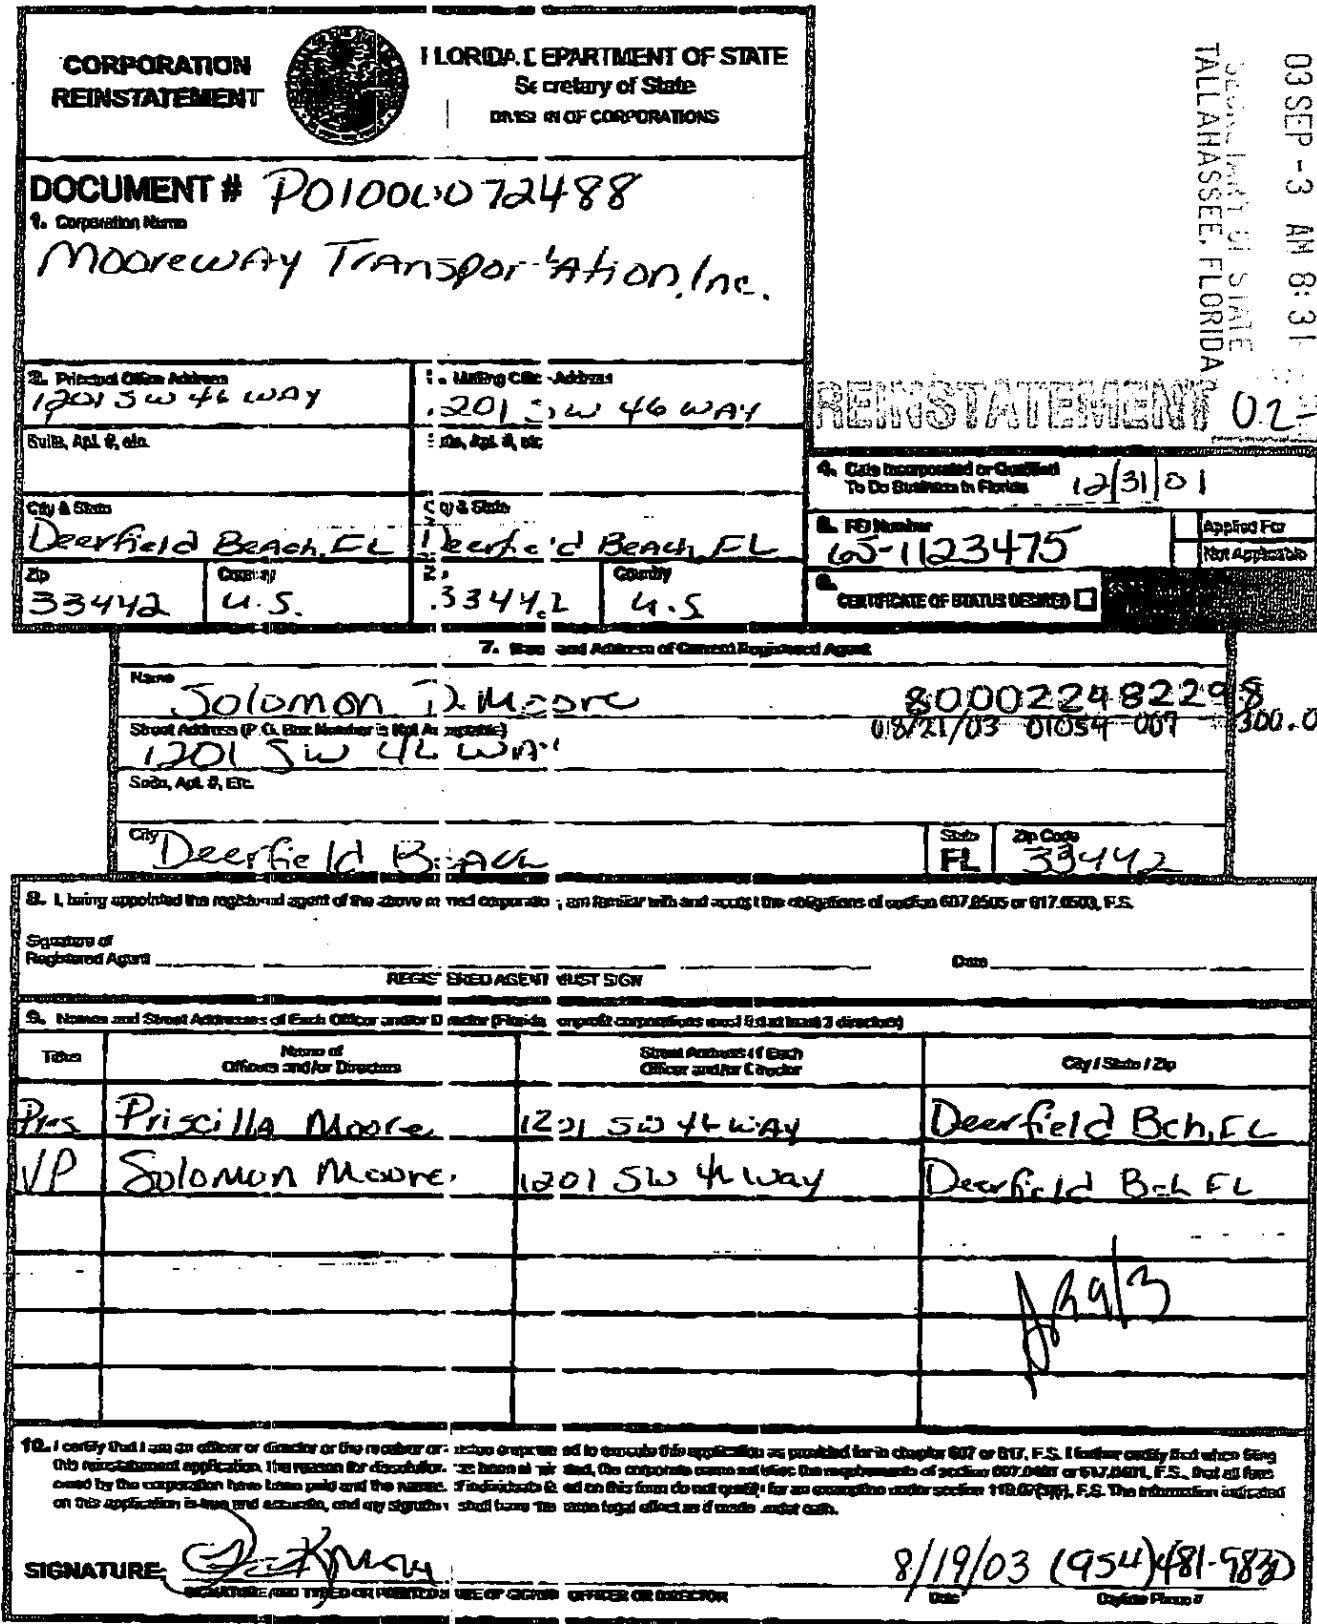 CORPORATION
REINSTATEMENT
FLORIDA DEPARTMENT OF STATE
Secretary of State
DIVISION OF CORPORATIONS
03 SEP -3 AM 8:31
SECRETARY OF STATE
TALLAHASSEE, FLORIDA
DOCUMENT # P01000072488
1. Corporation Name
Mooreway Transportation, Inc.
2. Principal Office Address
1201 SW 46 WAY
Suite, Apt. #, etc.
City & State
Deerfield Beach, FL
Zip
33442
Country
U.S.
3. Mailing Office Address
1201 SW 46 WAY
Suite, Apt. #, etc
City & State
Deerfield Beach, FL
Zip
33442
Country
U.S
REINSTATEMENT 02-
4. Date Incorporated or Qualified
To Do Business in Florida 12/31/01
5. FEI Number
65-1123475
Applied For
Not Applicable
6.
CERTIFICATE OF STATUS DESIRED
7. Name and Address of Current Registered Agent
Name
Solomon D. Moore
800022482298
08/21/03 01054 007 300.0
Street Address (P.O. Box Number is Not Acceptable)
1201 SW 46 WAY
Suite, Apt. #, Etc.
City
Deerfield Beach
State
FL
Zip Code
33442
8. I, being appointed the registered agent of the above named corporation, am familiar with and accept the obligations of section 607.0505 or 617.0503, F.S.
Signature of
Registered Agent
Date
REGISTERED AGENT MUST SIGN
9. Names and Street Addresses of Each Officer and/or Director (Florida nonprofit corporations must list at least 3 directors)
Titles
Name of
Officers and/or Directors
Street Address of Each
Officer and/or Director
City / State / Zip
Pres Priscilla Moore 1201 SW 46 WAY Deerfield Bch, FL
VP Solomon Moore. 1201 SW 46 Way Deerfield Bch FL
9/3
10. I certify that I am an officer or director or the receiver or trustee empowered to execute this application as provided for in chapter 607 or 617, F.S. I further certify that when filing
this reinstatement application, the reason for dissolution has been eliminated, the corporate name satisfies the requirements of section 607.0401 or 617.0401, F.S., that all fees
owed by the corporation have been paid and the names of individuals listed on this form do not qualify for an exemption under section 119.07(3)(i), F.S. The information indicated
on this application is true and accurate, and my signature shall have the same legal effect as if made under oath.
SIGNATURE:
8/19/03 (954)481-9830
SIGNATURE AND TYPED OR PRINTED NAME OF SIGNING OFFICER OR DIRECTOR
Date
Daytime Phone #